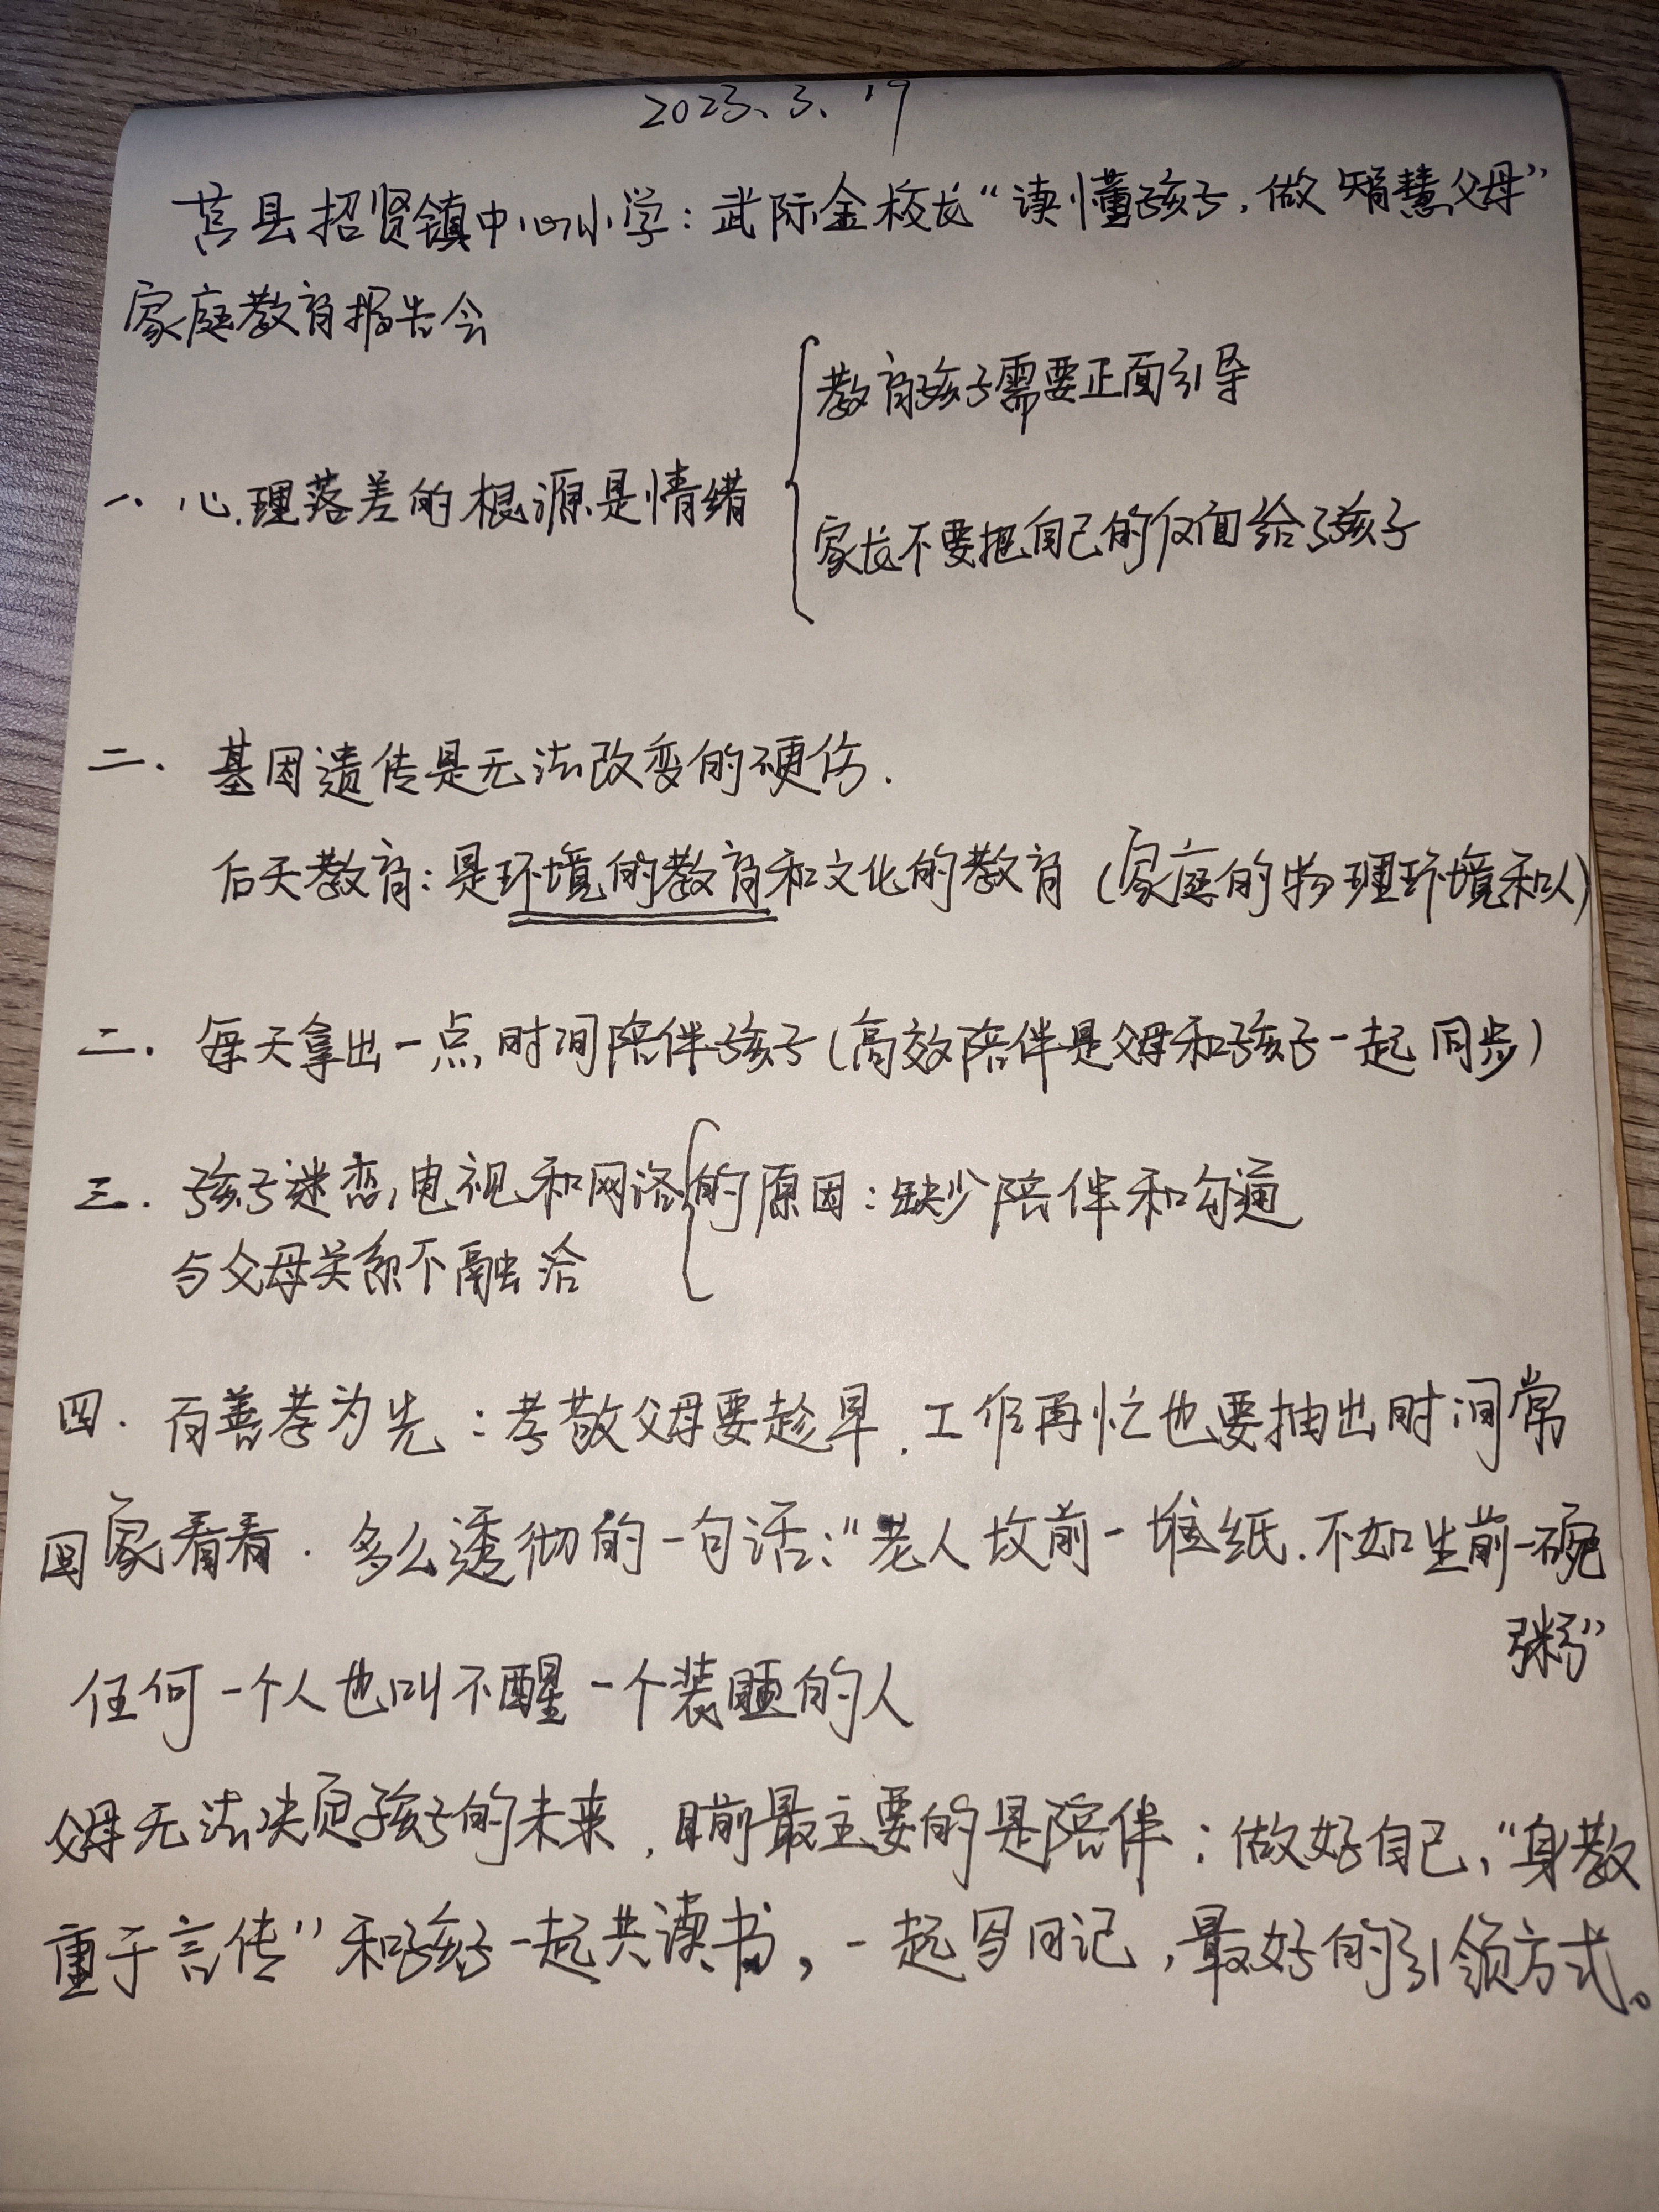 2023.3.19
莒县招贤镇中心小学：武际金校长“读懂孩子，做智慧父母”
家庭教育报告会
教育孩子需要正面引导
一、心理落差的根源是情绪
家长不要把自己的仅面给了孩子
二、基因遗传是无法改变的硬伤.
后天教育：是环境的教育和文化的教育（家庭的物理环境和人）
二、每天拿出一点时间陪伴孩子（高效陪伴是父母和孩子一起同步）
三、孩子迷恋电视和网络的原因：缺少陪伴和勾通
与父母关系不融洽
四、百善孝为先：孝敬父母要趁早，工作再忙也要抽出时间常
回家看看．多么透彻的一句话：“老人坟前一堆纸．不如生前一碗
粥”
任何一个人也叫不醒一个装睡的人
父母无法决定孩子的未来，目前最主要的是陪伴：做好自己，“身教
重于言传”和孩子一起共读书，一起写日记，最好的引领方式。